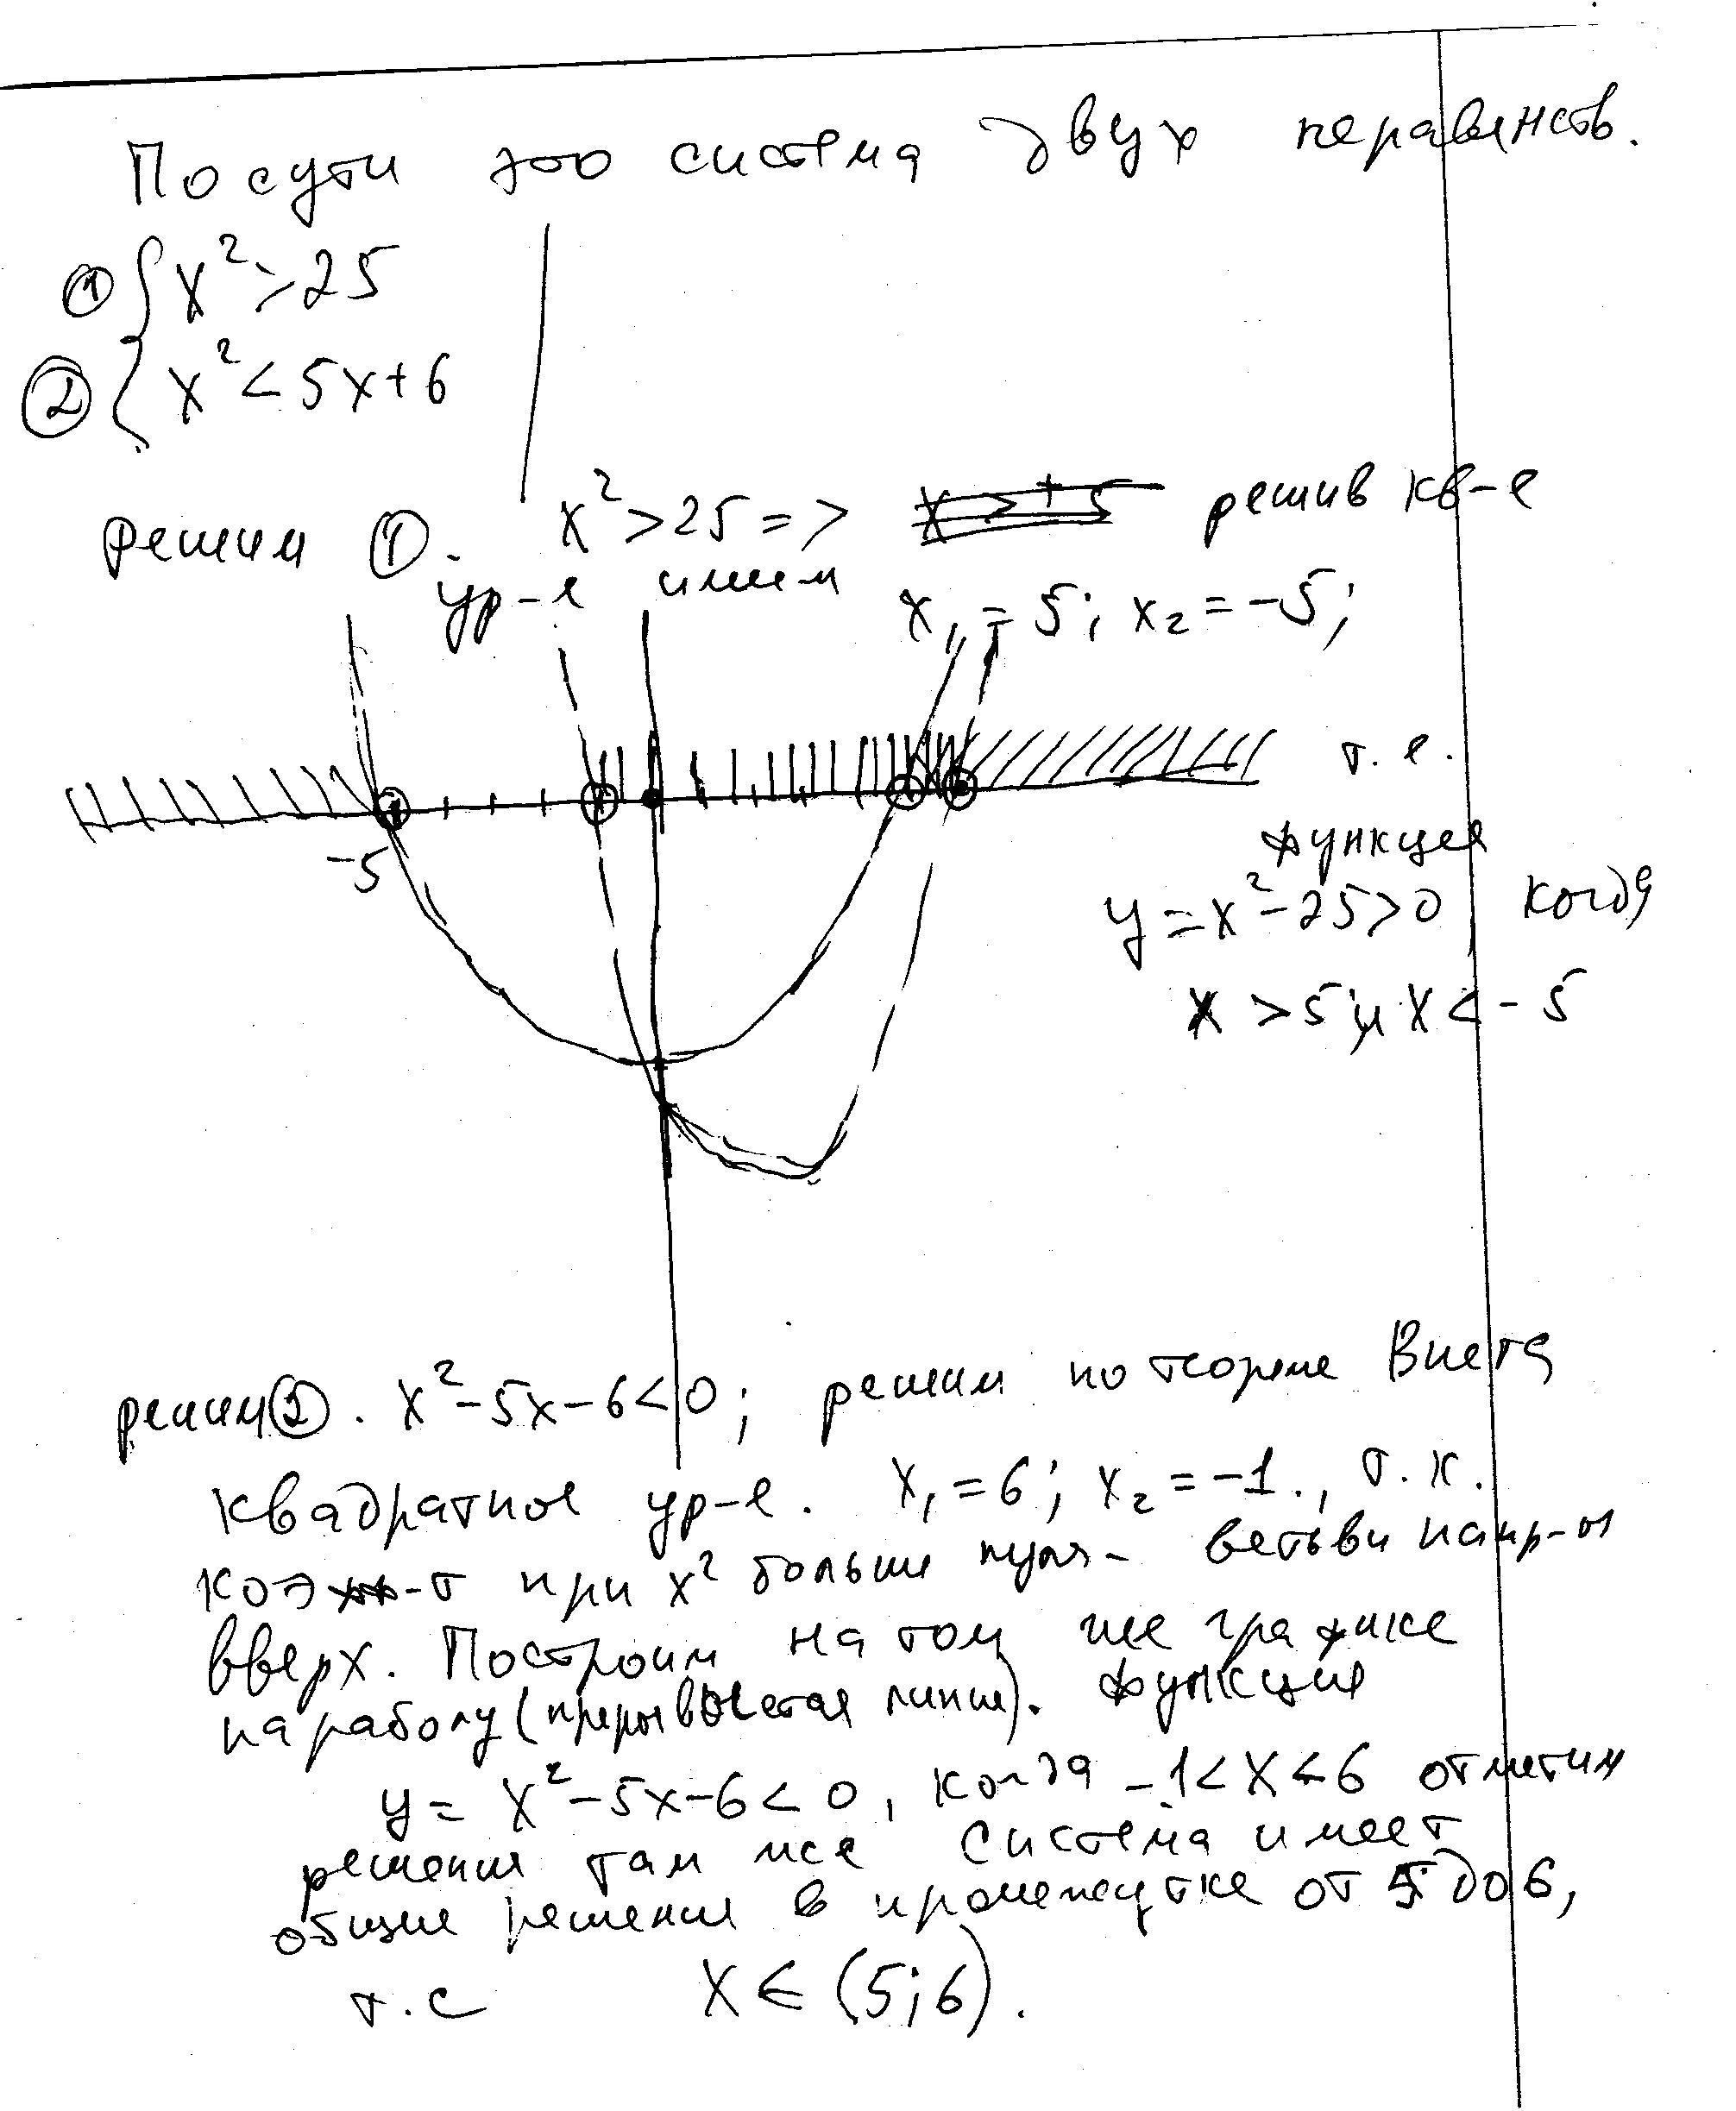 По сути это система двух неравенств.
① { x² > 25
② { x² < 5x+6
решим ①. x² > 25 => x > ±5 решив кв-е
ур-е имеем x₁ = 5; x₂ = -5;
т.е.
-5
функция
y = x² - 25 > 0 когда
x > 5 и x < - 5
решим ②. x² - 5x - 6 < 0; решим по теореме Виета
квадратное ур-е. x₁ = 6; x₂ = -1., т.к.
коэф-т при x² больше нуля - ветьви напр-ы
вверх. Построим на том же графике
параболу (прерывистая линия). функция
y = x² - 5x - 6 < 0, когда -1 < x < 6 отметим
решения там же система имеет
общие решения в промежутке от 5 до 6,
т.е x ∈ (5; 6).